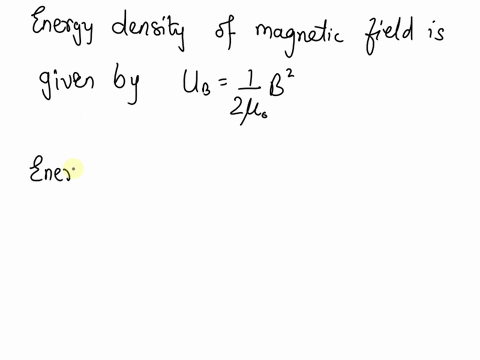 Energy density of magnetic field is
given by U_B = 1/2μ₀ B²
Ener